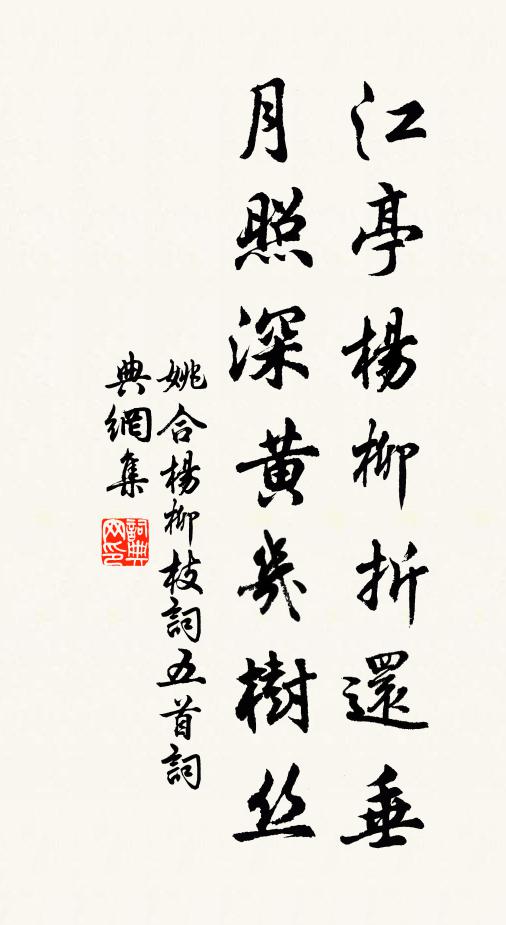 江亭楊柳折還垂
月照深黄幾樹丝
姚合楊柳枝詞五首詞
典網集
詞典网印